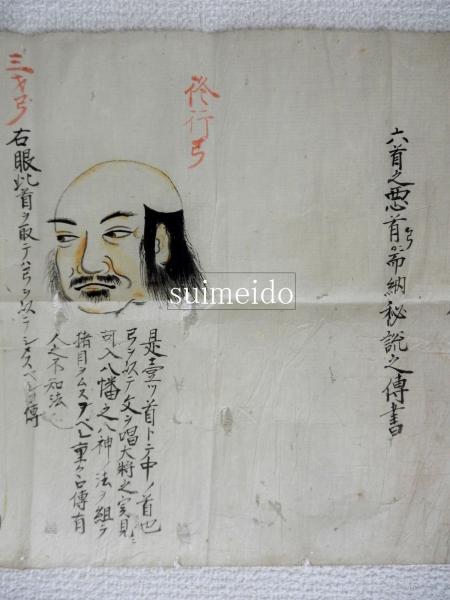 六首之悪首布納秘説之傳書
修行弓
是壹ツ首トテ中ノ首也
弓ヲ以テ文ヲ唱大将之実見ニ
可入八幡之八神ノ法ヲ組テ
猪目ヲムスブベシ重々口傳有
三才弓
右眼此首ヲ取テハ弓ヲ以テシタスベシ口傳
人之不知法
suimeido